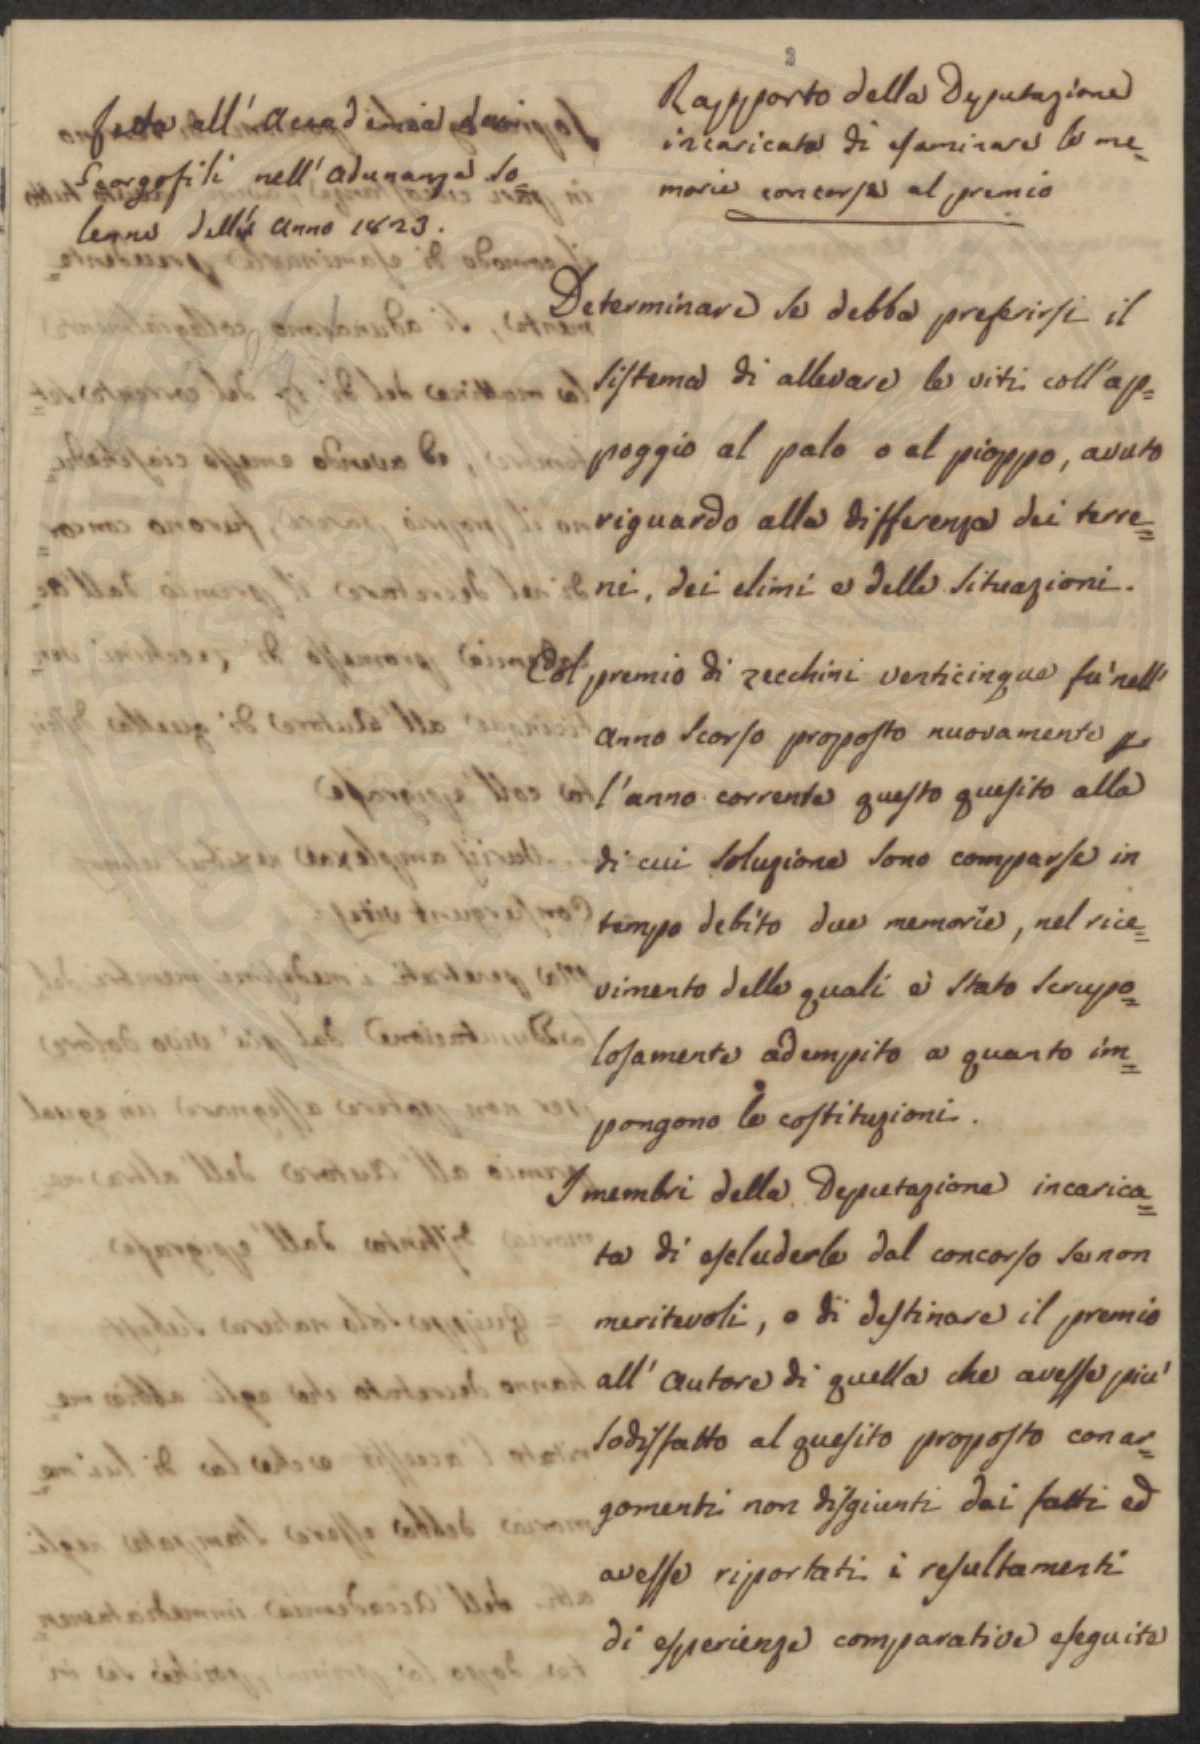 2
Rapporto della Deputazione
incaricata di esaminare le me=
morie concorse al premio
fatto all'Accademia dei
Georgofili nell'adunanza so=
lenne dell'Anno 1823.
Determinare se debba preferirsi il
sistema di allevare le viti coll'ap=
poggio al palo o al pioppo, avuto
riguardo alla differenza dei terre=
ni, dei climi e delle situazioni.
Col premio di zecchini venticinque fu' nell'
anno scorso proposto nuovamente p
l'anno corrente questo quesito alla
di cui soluzione sono comparse in
tempo debito due memorie, nel rice=
vimento delle quali è stato scrupo=
losamente adempito a quanto im=
pongono le costituzioni.
I membri della Deputazione incarica=
ta di escluderle dal concorso se non
meritevoli, o di destinare il premio
all'Autore di quella che avesse più
sodisfatto al quesito proposto con ar=
gomenti non disgiunti dai fatti ed
avesse riportati i resultamenti
di esperienze comparative eseguite